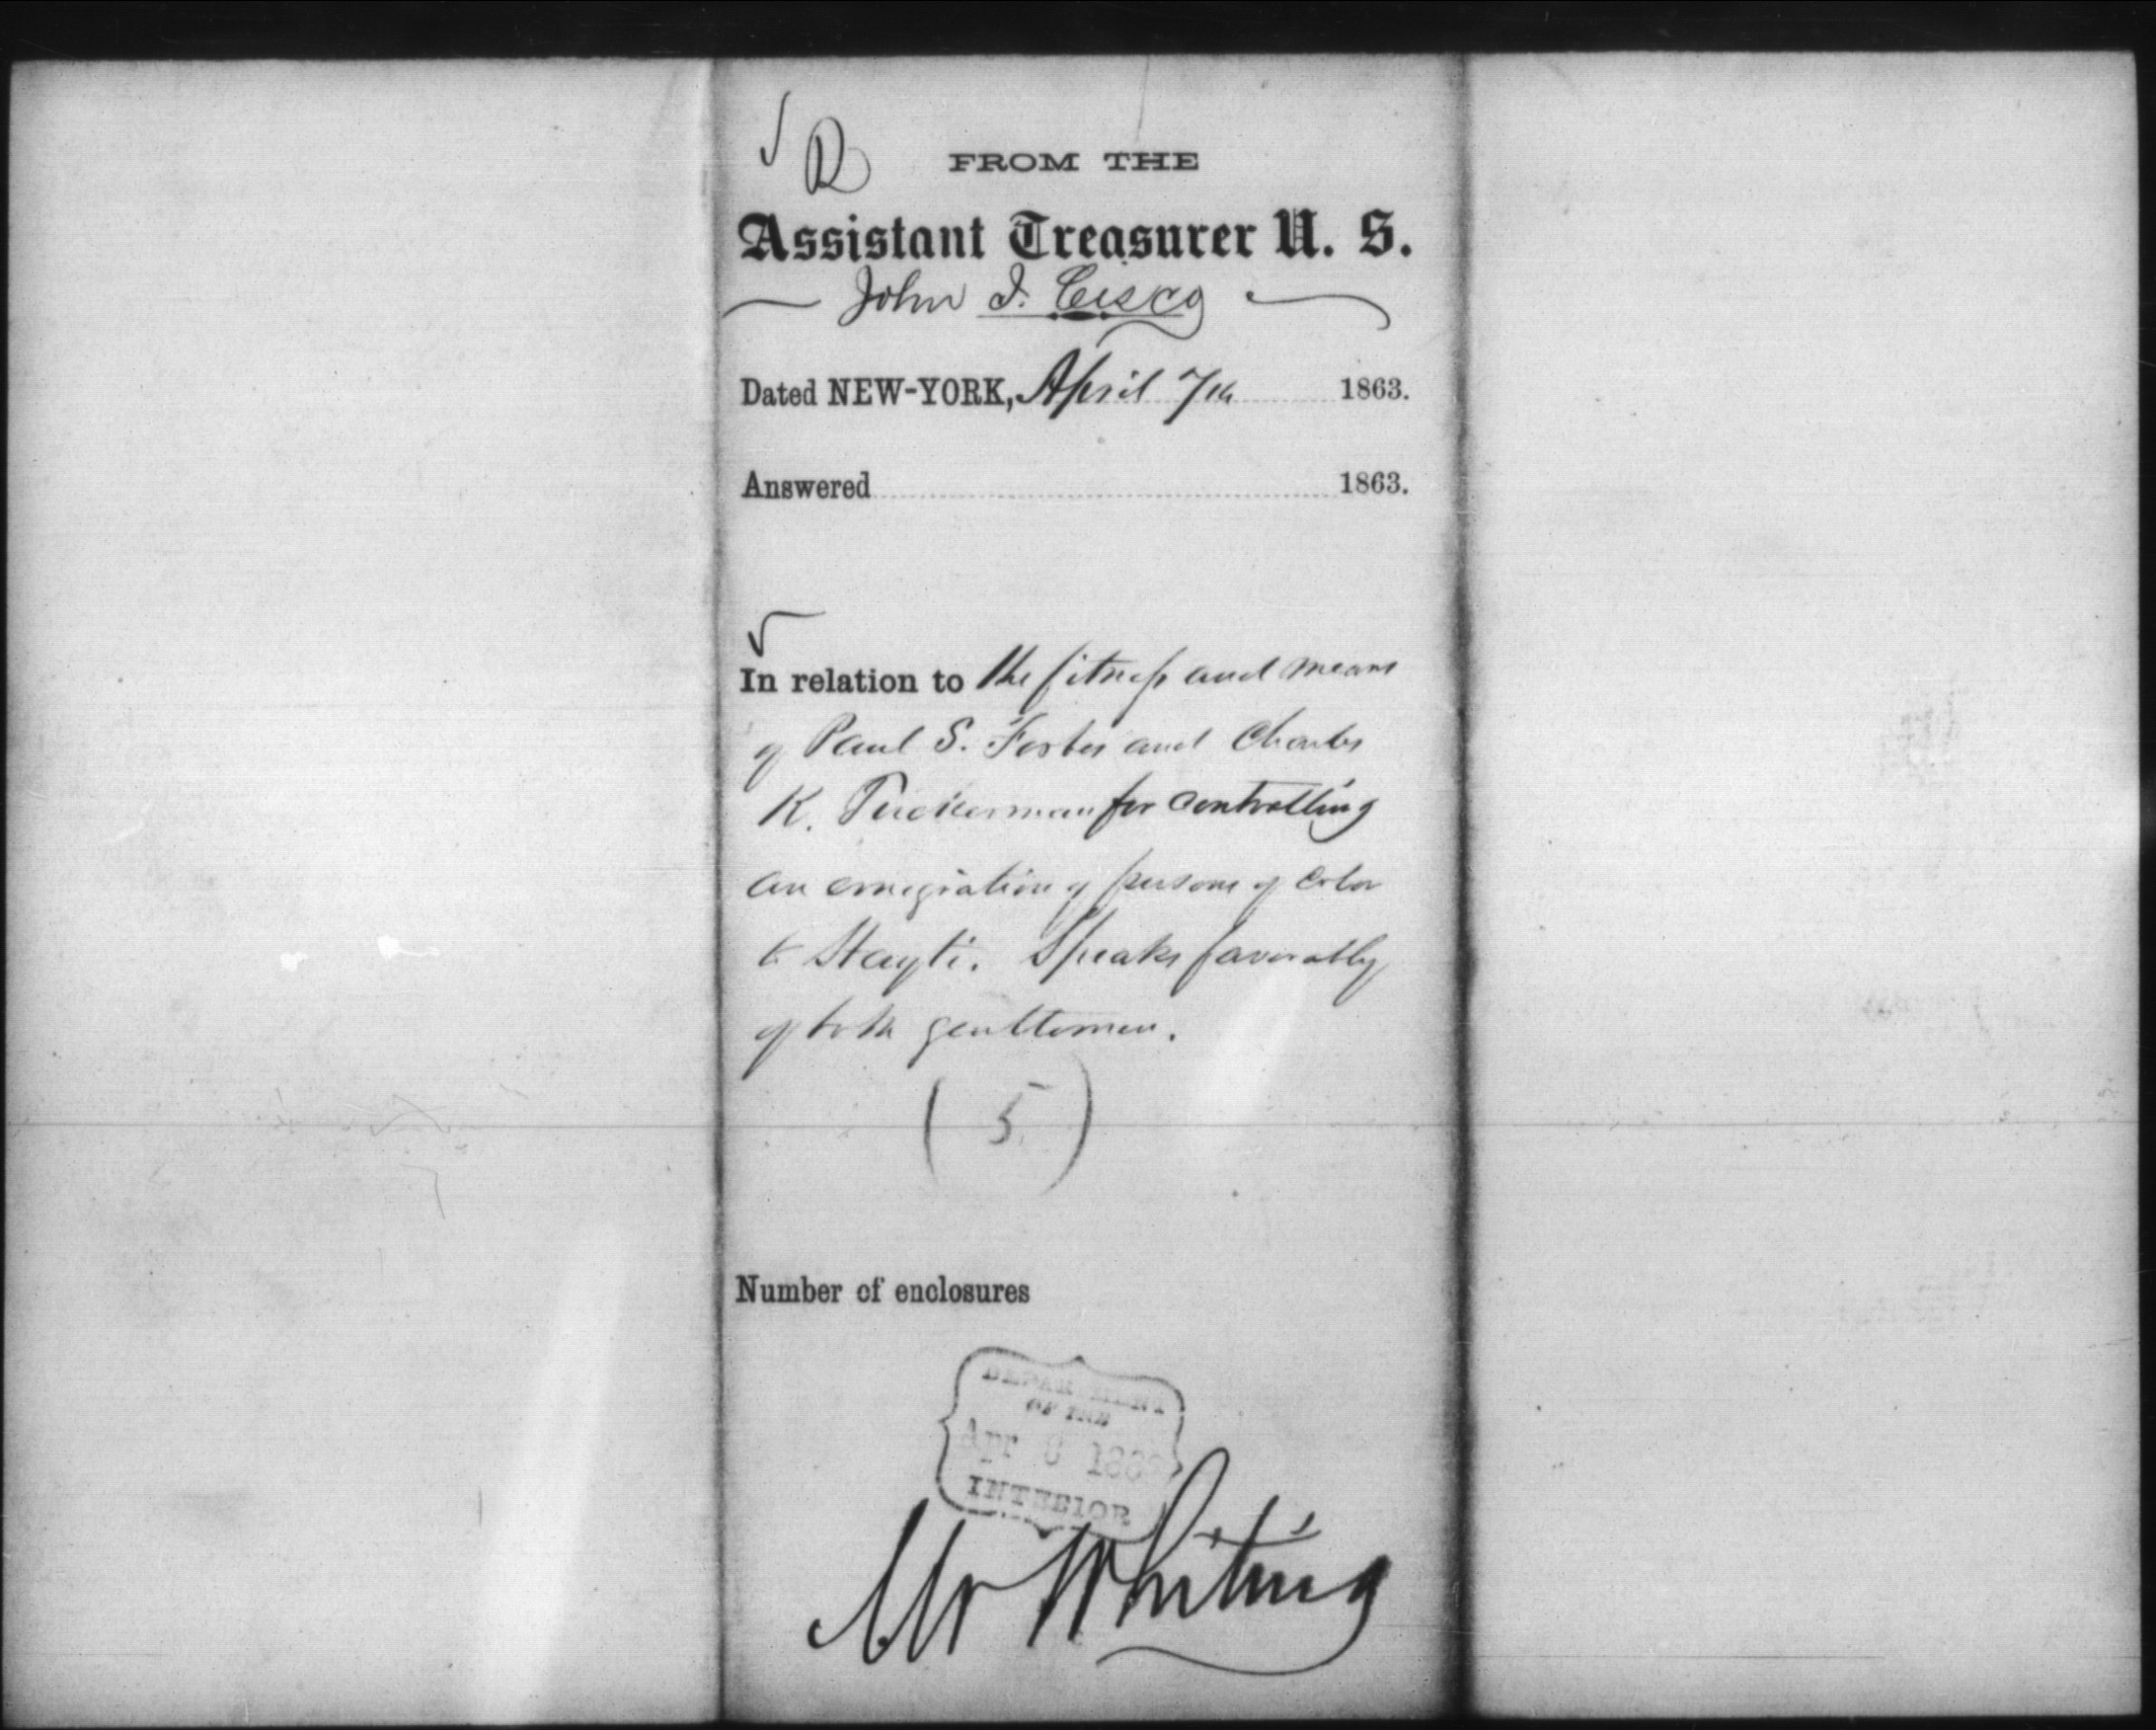 R FROM THE
Assistant Treasurer U. S.
John J. Cisco
Dated NEW-YORK, April 7th 1863.
Answered 1863.
In relation to the fitness and means
of Paul S. Forbes and Charles
K. Tuckerman for controlling
an emigration of persons of color
to Hayti. Speaks favorably
of both gentlemen.
(5)
Number of enclosures
DEPARTMENT
OF THE
Apr 8 1863
INTERIOR
Mr Whiting